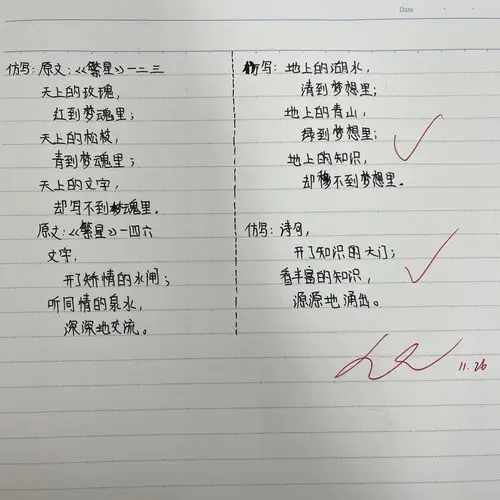 Date
仿写:原文:《繁星》一二三
天上的玫瑰,
红到梦魂里;
天上的松枝,
青到梦魂里;
天上的文字,
却写不到梦魂里。
原文:《繁星》一四六
文字,
开了矫情的水闸;
听同情的泉水,
深深地交流。
仿写:地上的湖水,
清到梦想里;
地上的青山,
绿到梦想里;
地上的知识,
却移不到梦想里。
仿写:诗句,
开了知识的大门;
看丰富的知识,
源源地涌出。
11.26